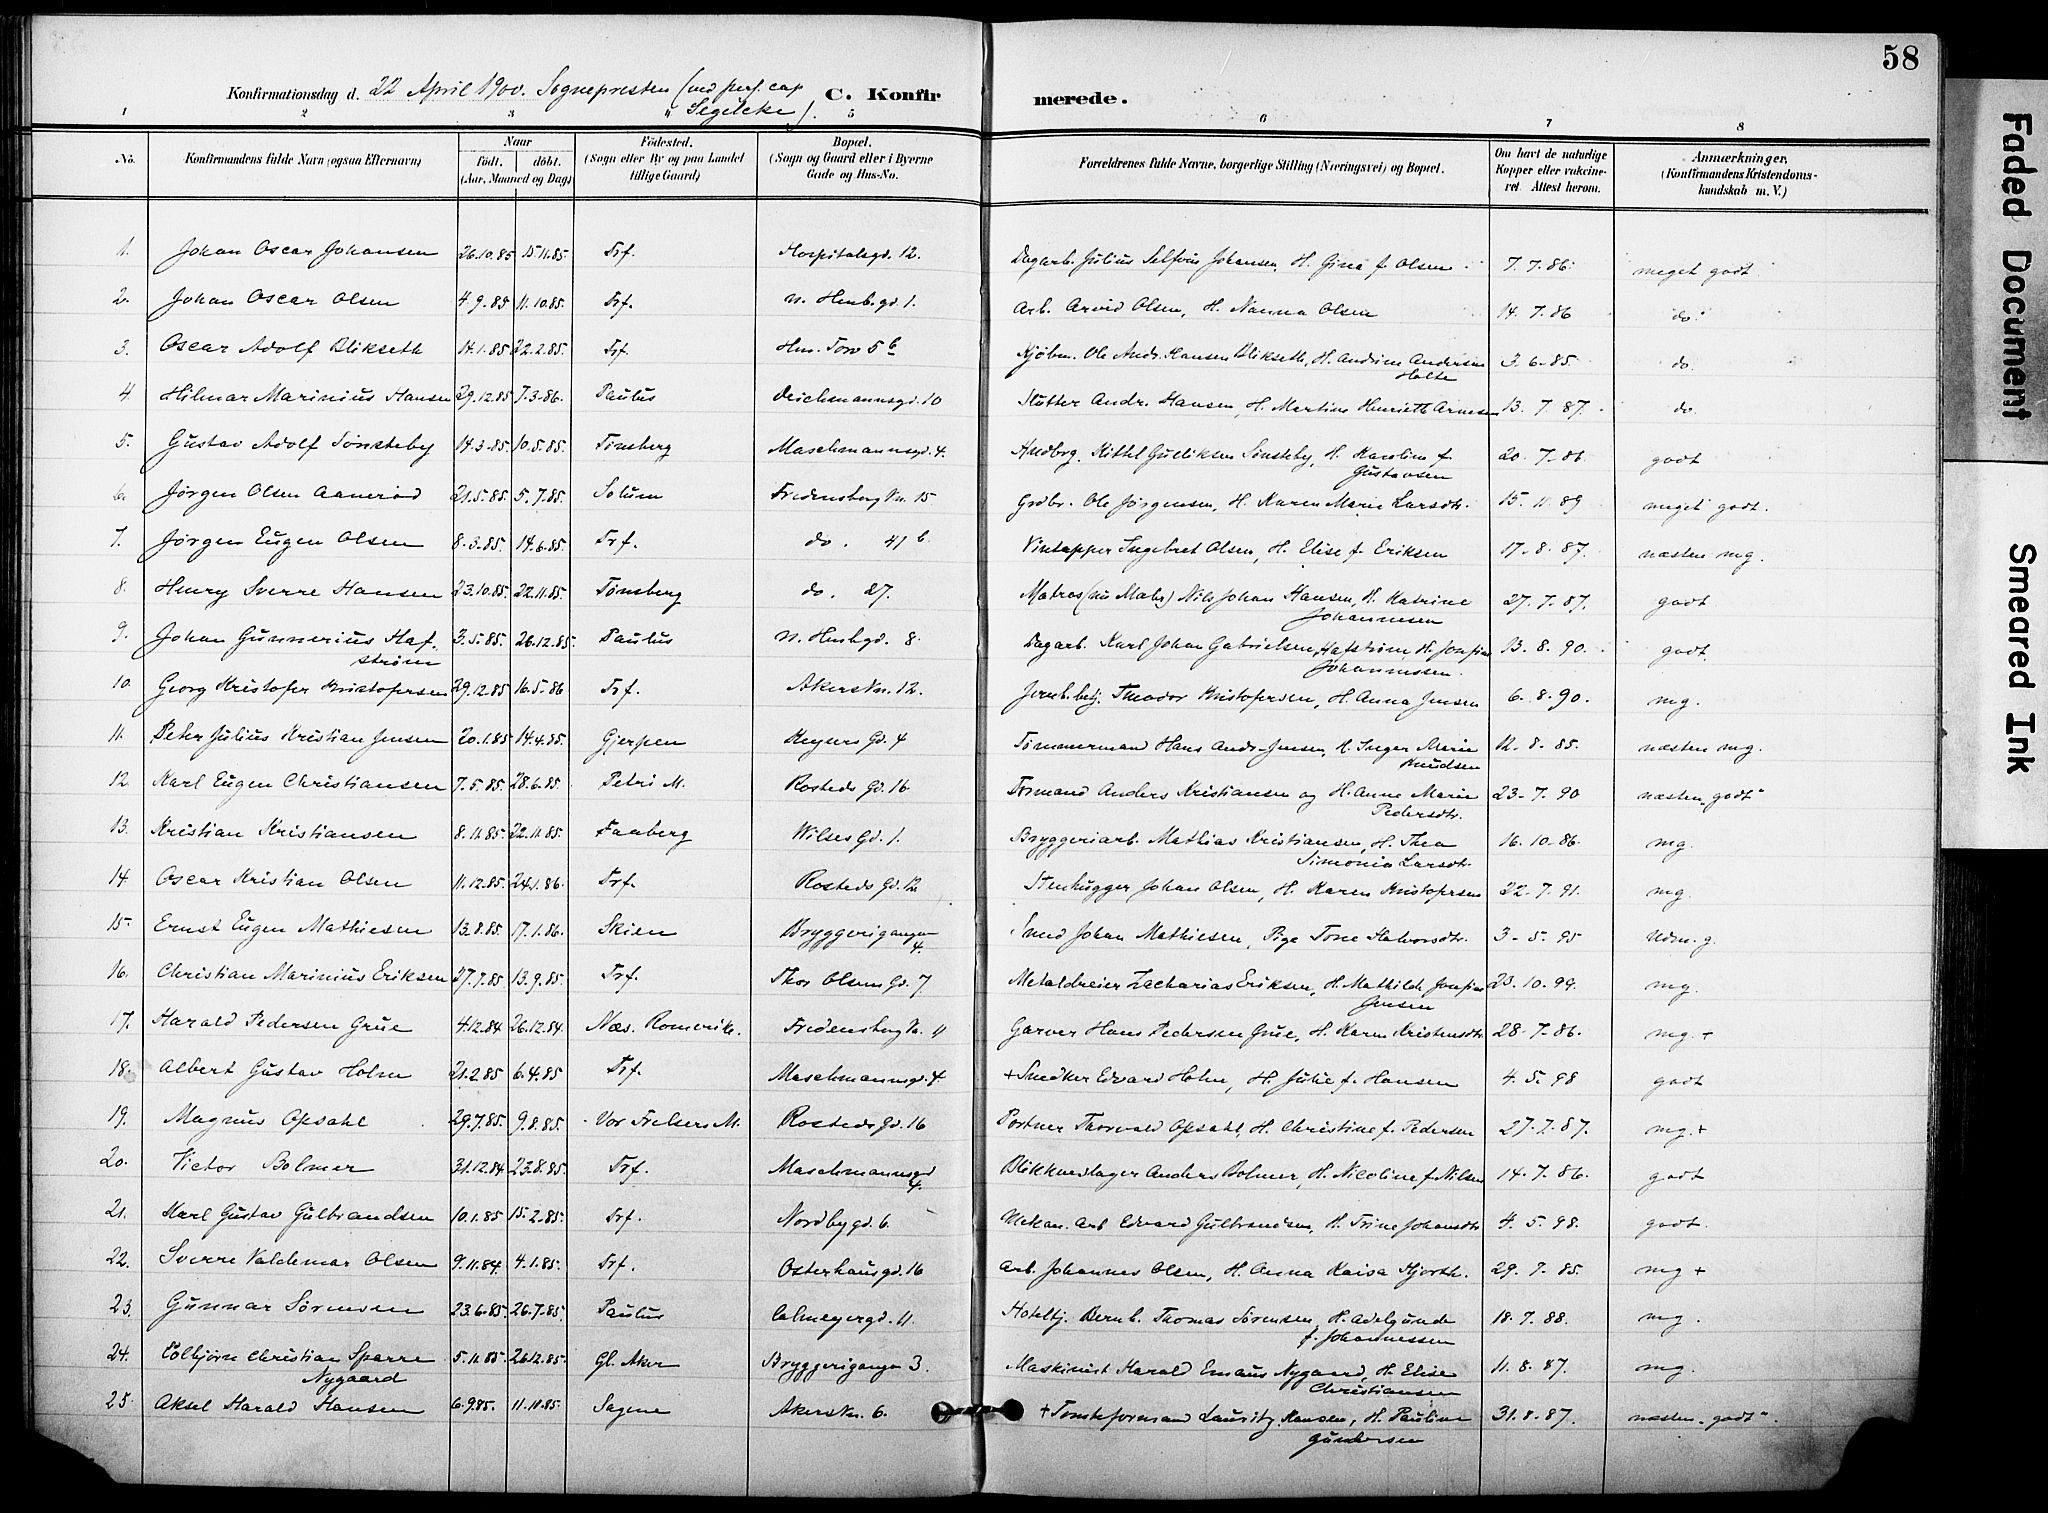 58
Konfirmationsdag d. 22 April 1900. Sognepresten (ved pers. cap
" Segelcke).
C. Konfirmerede.
1 2 3 5 6 7 8
No. Konfirmandens fulde Navn (ogsaa Efternavn) Naar født. døbt. (Aar, Maaned og Dag) Fødested. (Sogn eller By og paa Landet tillige Gaard) Bopæl. (Sogn og Gaard eller i Byerne Gade og Hus-No. Forældrenes fulde Navne, borgerlige Stilling (Næringsvei) og Bopæl. Om havt de naturlige Kopper eller vakcineret. Attest herom. Anmærkninger. (Konfirmandens Kristendomskundskab m. V.)
1. Johan Oscar Johansen 26.10.85 15.11.85. Trf. Hospitalsgd. 12. Dagarb. Julius Johansen, H. Gina f. Olsen 7. 7. 86. meget godt
2. Johan Oscar Olsen 4.9.85 11.10.85. Trf. n. Hmb. gd. 1. Arb. Arvid Olsen, H. Nanna Olsen 14. 7. 86 do.
3. Oscar Adolf Blikseth 14.1.85 22.2.85. Trf. Hm. Torv 5 b Kjøbm. Ole Andr. Hansen Blikseth, H. Andrine Andersen
Holte 3.6.85. do.
4. Hilmar Marinius Hansen 29.12.85 7.3.86. Paulus Deichmannsgd. 10 Andr. Hansen, H. Martine Henriette Arnesen 13. 7. 87. do.
5. Gustav Adolf Tønsteby 14.3.85. 10.5.85. Tønsberg Maschmannsgd. 4. Kittel Gulliksen H. Karoline f.
Gustavsen 20. 7. 86 godt
6. Jørgen Olsen Aanerød 21.5.85. 5.7.85. Solum Fredensborg Vn. 15 Grdbr. Ole Jørgensen, H. Karen Marie Larsdtr. 15. 11. 89 meget godt.
7. Jørgen Eugen Olsen 8.3.85. 14.6.85. Trf. do. 41 b Vintapper Ingebret Olsen, H. Elise f. Eriksen 17. 8. 87. næsten mg.
8. Henry Sverre Hansen 23.10.85. 22.11.85. Tønsberg do. 27. Matros (nu Maler) Nils Johan Hansen, H. Katrine
Johannesen 27. 7. 87. godt
9. Johan Gunnerius Haf-
strøm 3.5.85. 26.12.85. Paulus n. Hmbgd. 8. Dagarb. Karl Johan Gabrielsen Hafstrøm, H. Josefine
Johannessen. 13. 8. 90. godt.
10. Georg Kristofer Kristofersen 29.12.85 16.5.86 Trf. Akers Vn. 12. Jernb. betj. Theodor Kristofersen, H. Anna Jensen 6. 8. 90. mg.
11. Peter Julius Kristian Jensen 20.1.85 14.4.85. Gjerpen Keysers Gd. 4 Tømmermand Hans Andr. Jensen, H. Inger Marie
Knudsen 12. 8. 85. næsten mg.
12. Karl Eugen Christiansen 7.5.85. 28.6.85. Petri M. Rosteds Gd. 16 Formand Anders Kristiansen og H. Anne Marie
Pedersdtr. 23. 7. 90 næsten "godt"
13. Kristian Kristiansen 8.11.85. 22.11.85. Faaberg Wilses Gd. 1. Bryggeriarb. Mathias Kristiansen, H. Thea
Simonia Larsdt. 16. 10. 86. mg.
14 Oscar Kristian Olsen 11.12.85. 24.1.86. Trf. Rosteds Gd. 12 Stenhugger Johan Olsen, H. Karen Kristofersen 22. 7. 91. mg.
15. Ernst Eugen Mathiesen 13.8.85. 17.1.86. Skien Bryggerigangen
4. Smed Johan Mathiesen, Pige Tone Halvorsdtr. 3. 5. 95 Udm. g.
16. Christian Marinius Eriksen 27.7.85 13.9.85. Trf. Thor Olsens Gd. 7 Metaldreier Zacharias Eriksen, H. Mathilde Josefine
Jensen 23. 10. 99. mg.
17. Harald Pedersen Grue 4.12.84 26.12.84. Næs. Romerike. Fredensborg Vn. 11 Garver Hans Pedersen Grue, H. Karen Kristensdtr 28. 7. 86. mg. +
18. Albert Gustav Holm 21.2.85 6.4.85 Trf. Maschmannsgd. 4 + Snedker Edvard Holm, H. Julie f. Hansen 4. 5. 98 godt
19. Magnus Opsahl 29.7.85. 9.8.85. Vor Frelsers M. Rosteds Gd. 16 Portner Thorvald Opsahl, H. Christine f. Pedersen 27. 7. 87. mg. +
20. Victor Bolmer 31.12.84 23.8.85. Trf. Maschmannsgd
4. Blikkenslager Anders Bolmer, H. Nicoline f. Nilsen 14. 7. 86. godt
21. Karl Gustav Gulbrandsen 10.1.85 15.2.85. Trf. Nordbygd. 6. Mekan. Arb Edvard Gulbrandsen, H. Trine Johansdtr 4. 5. 98. godt.
22. Sverre Valdemar Olsen 9.11.84. 4.1.85. Trf. Osterhausgd. 16 Arb. Johannes Olsen, H. Anna Kaisa Hjorth. 29. 7. 85. mg +
23. Gunnar Sørensen 23.6.85. 26.7.85. Paulus Calmeyergd. 11. Hotelbj. Bernh. Thomas Sørensen, H. Adelgunde
f. Johannessen 18. 7. 88. mg.
24. Eolbjørn Christian Sparre
Nygaard 5.11.85. 26.12.85. Gl. Aker Bryggerigangen 3. Maskinist Harald Emaus Nygaard, H. Elise
Christiansen 11. 8. 87. mg.
25. Aksel Harald Hansen 6.9.85. 11.10.85. Sagene Akers Vn. 6. + Tomteformand Lauritz Hansen, H. Pauline
Gundersen 31. 8. 87. næsten "godt".
Faded Document
Smeared Ink